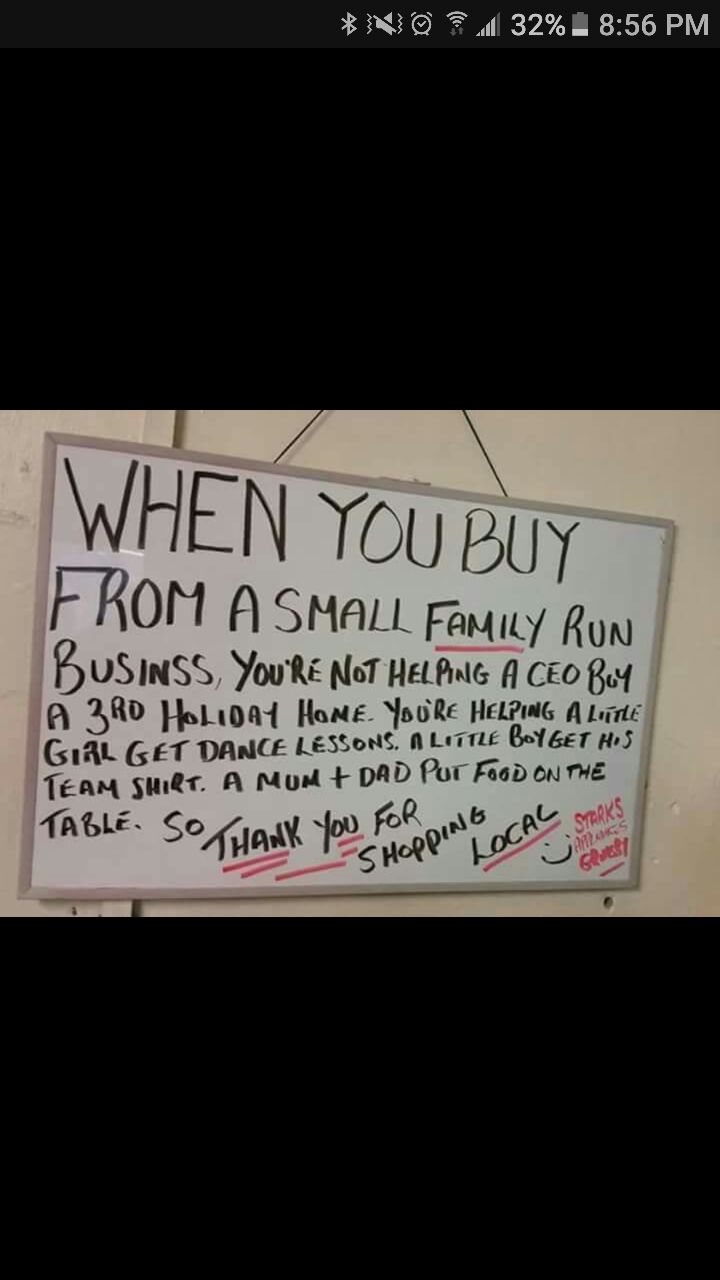 32% 8:56 PM
WHEN YOU BUY
FROM A SMALL FAMILY RUN
BUSINSS, YOU'RE NOT HELPING A CEO BUY
A 3RD HOLIDAY HOME. YOU'RE HELPING A LITTLE
GIRL GET DANCE LESSONS. A LITTLE BOY GET HIS
TEAM SHIRT. A MUM + DAD PUT FOOD ON THE
TABLE. SO THANK YOU FOR
SHOPPING LOCAL
STARKS